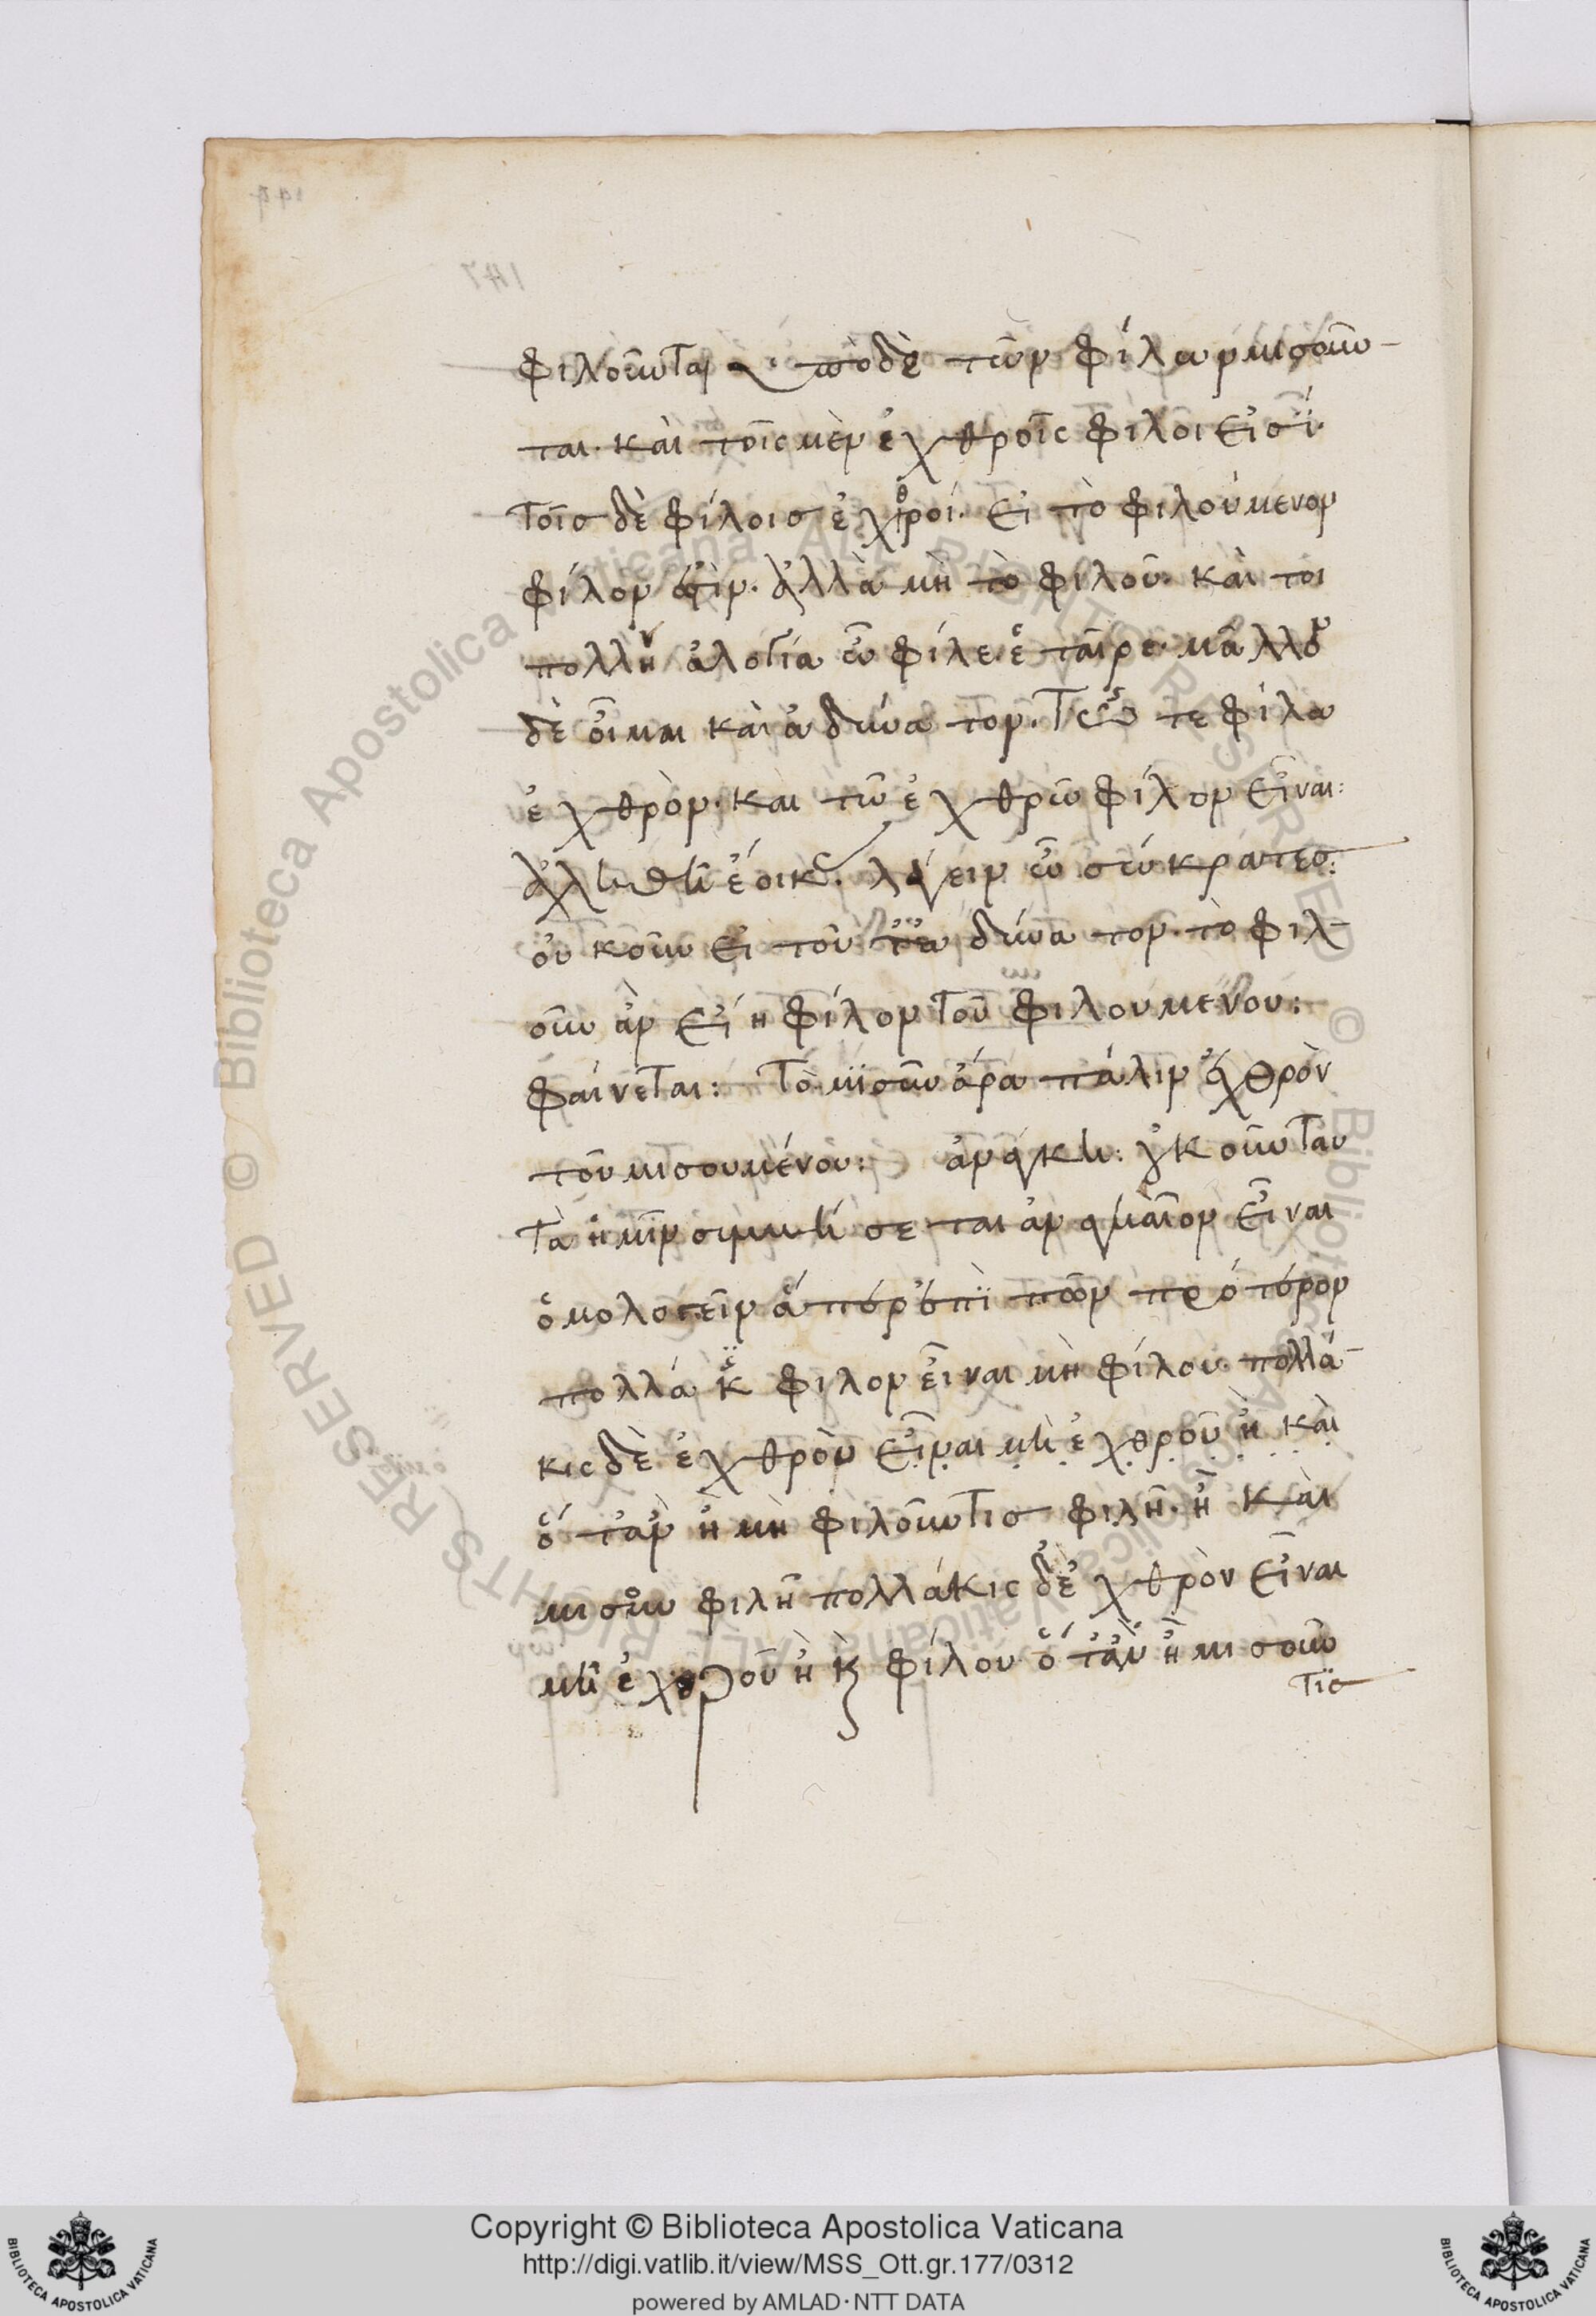 φιλοῦνται ὑπὸ δὲ τῶν φίλων μισοῦν-
ται. καὶ τοῖς μὲν ἐχθροῖς φίλοι εἰσί.
τοῖς δὲ φίλοις ἐχθροί. εἰ τὸ φιλούμενον
φίλον ἐστίν. ἀλλὰ μὴ τὸ φιλοῦν. καὶ τοι
πολλὴ ἀλογία ὦ φίλε ἑταῖρε. μᾶλλον
δὲ οἶμαι καὶ ἀδύνατον. τῷ τε φίλω
ἐχθρὸν. καὶ τῶ ἐχθρῶ φίλον εἶναι:
ἀληθῆ ἔοικας. λέγειν ὦ σώκρατες:
οὐκοῦν εἰ τοῦτ' ἀδύνατον. τὸ φιλ-
οῦν ἂν εἴη φίλον τοῦ φιλουμένου:
φαίνεται: Τὸ μισοῦν ἄρα πάλιν ἐχθρὸν
τοῦ μισουμένου: ἀνάγκη: οὐκοῦν ταυ
τὰ ἡμῖν συμβήσεται ἀναγκαῖον εἶναι
ὁμολογεῖν ἅπερ ἐπὶ τῶν πρότερον
πολλάκις φίλον εἶναι μὴ φίλου. πολλά-
κις δὲ ἐχθρὸν εἶναι μὴ ἐχθροῦ ἢ καὶ
ὅταν ἢ μὴ φιλοῦν τις φιλῆ. ἢ καὶ
μισοῦν φιλῆ πολλάκις δ' ἐχθρὸν εἶναι
μὴ ἐχθροῦ ἢ καὶ φίλου ὅταν ἢ μισοῦν
τις
Copyright © Biblioteca Apostolica Vaticana
http://digi.vatlib.it/view/MSS_Ott.gr.177/0312
powered by AMLAD·NTT DATA